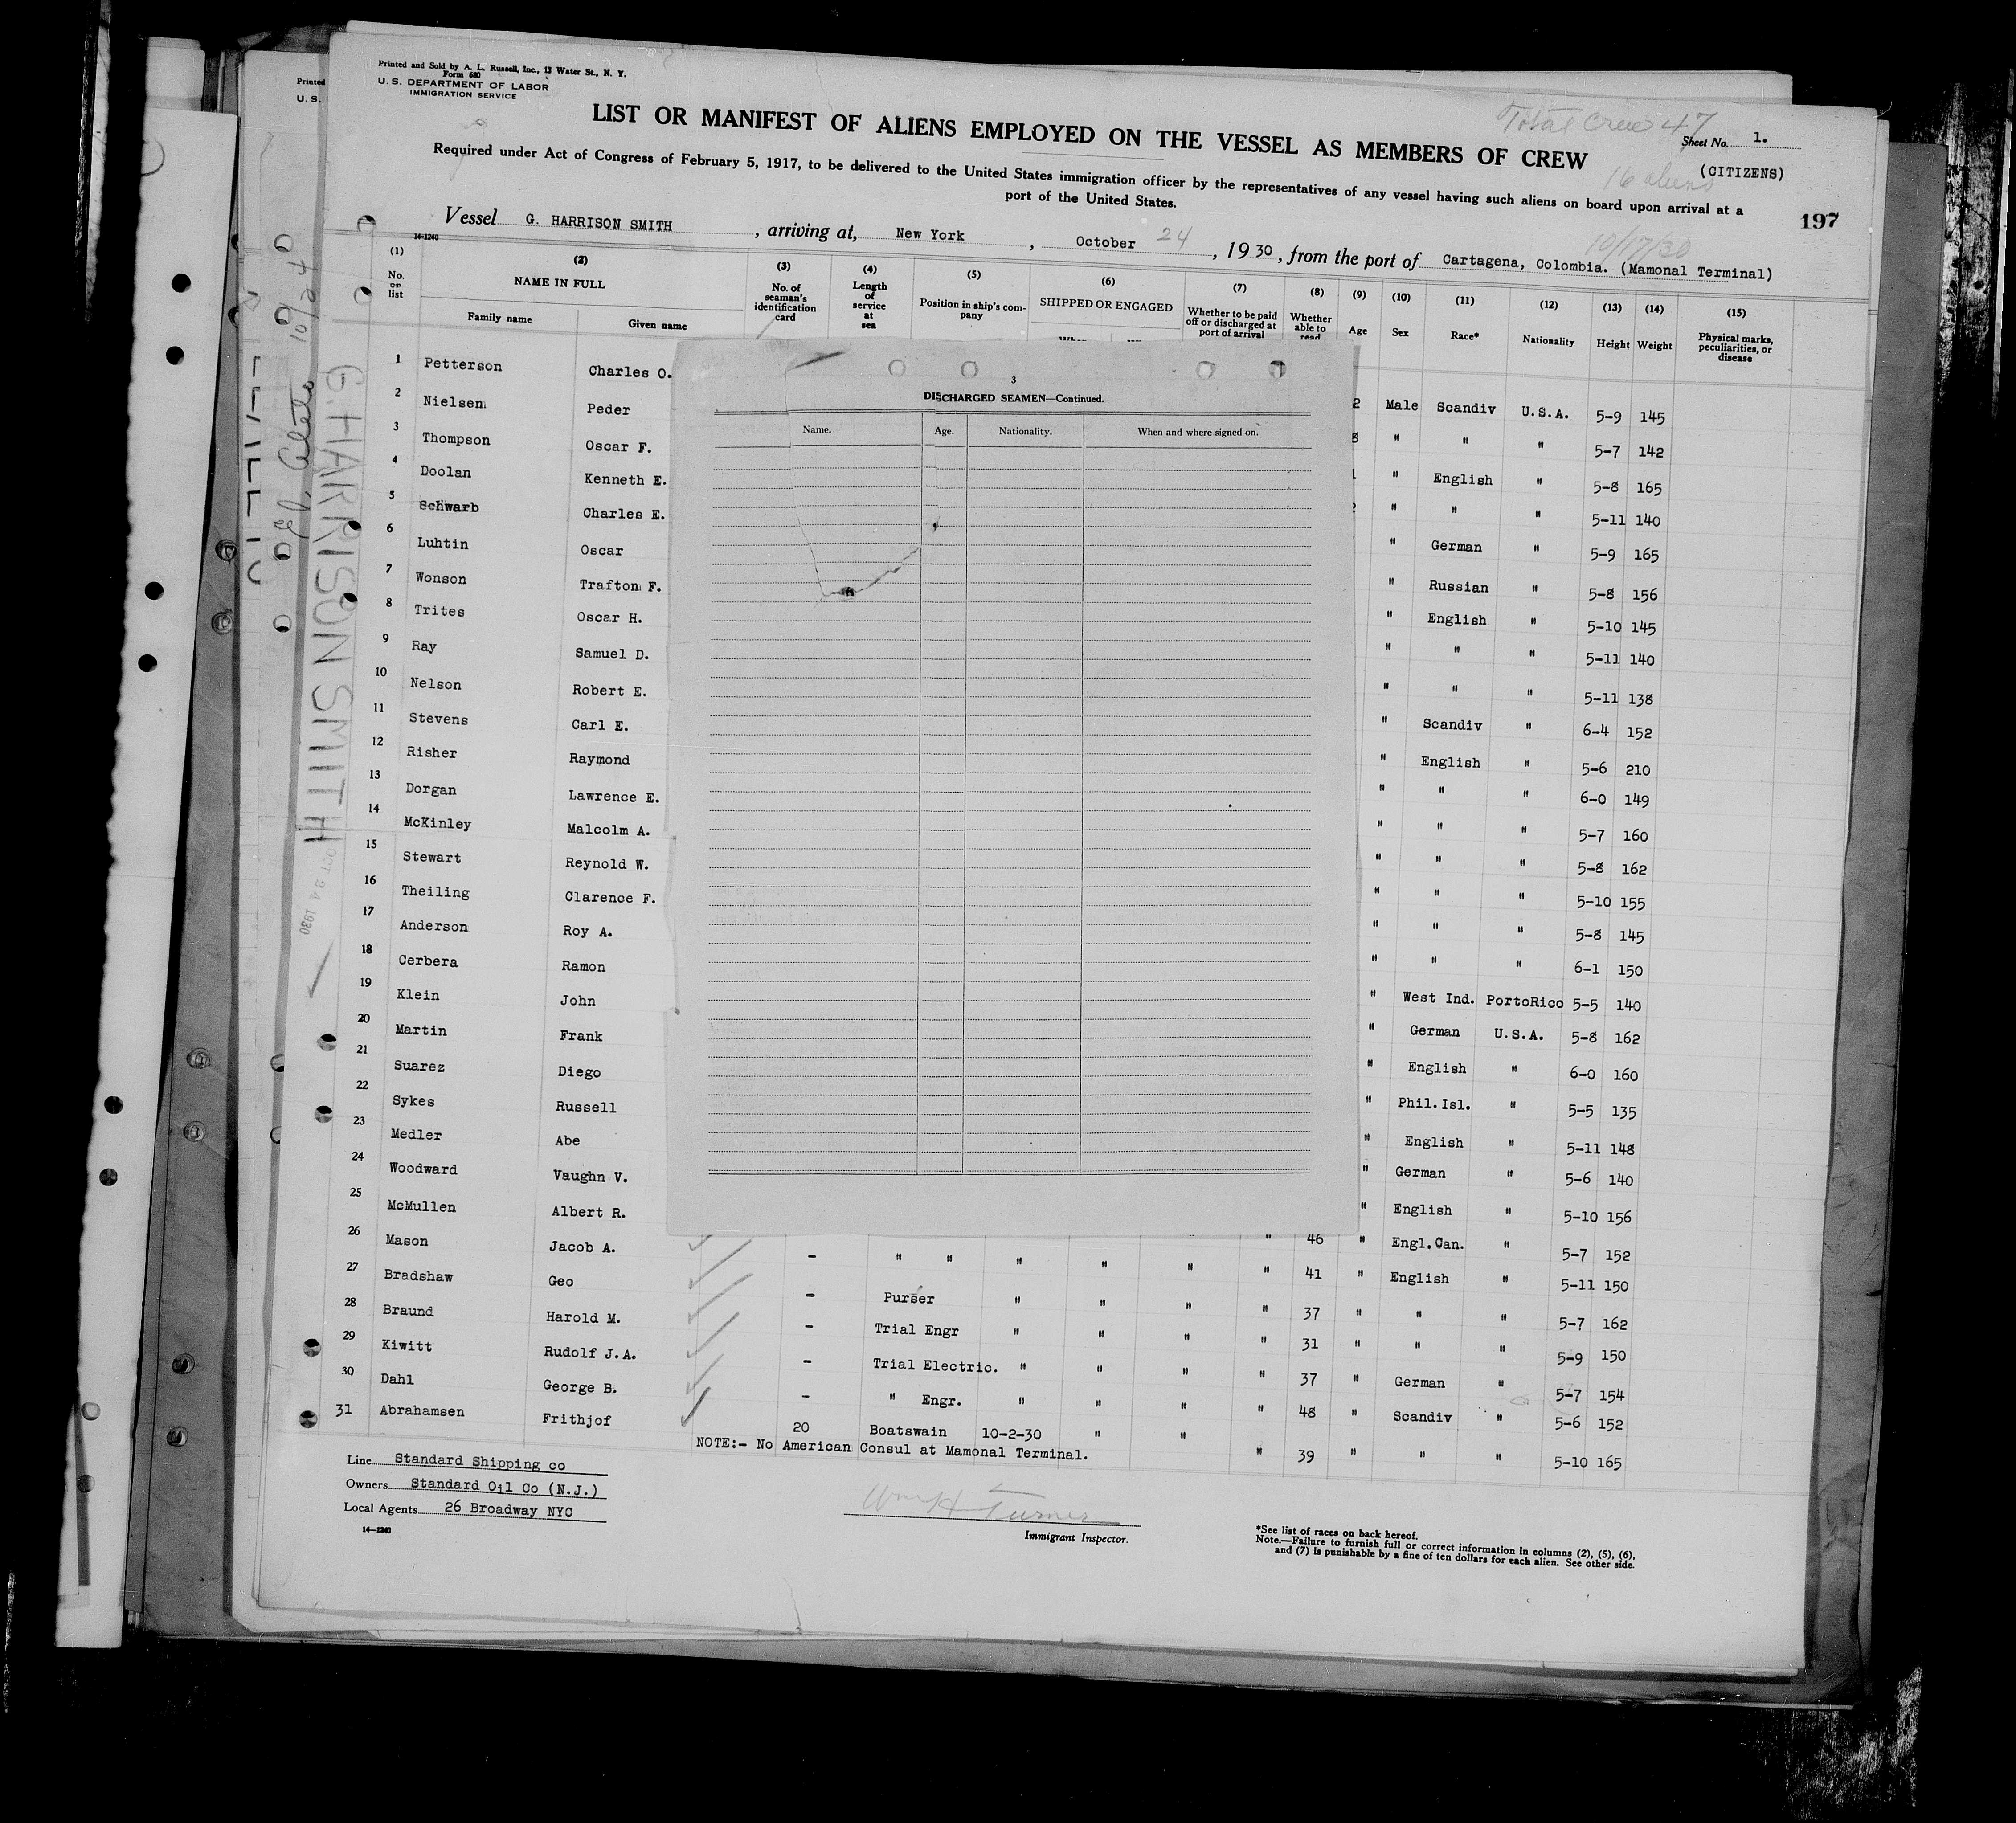 Printed and Sold by A. L. Russell, Inc., 13 Water St., N. Y.
Form 680
U. S. DEPARTMENT OF LABOR
IMMIGRATION SERVICE
Printed
U. S.
Total Crew 47
LIST OR MANIFEST OF ALIENS EMPLOYED ON THE VESSEL AS MEMBERS OF CREW
Sheet No. 1.
(CITIZENS)
16 aliens
Required under Act of Congress of February 5, 1917, to be delivered to the United States immigration officer by the representatives of any vessel having such aliens on board upon arrival at a
port of the United States.
197
10/17/30
Vessel G. HARRISON SMITH, arriving at, New York, October 24, 1930, from the port of Cartagena, Colombia. (Mamonal Terminal)
14-1240
(1) (2) (3) (4) (5) (6) (7) (8) (9) (10) (11) (12) (13) (14) (15)
No. on list
NAME IN FULL
Family name Given name
No. of seaman's identification card
Length of service at sea
Position in ship's company
SHIPPED OR ENGAGED
Whether to be paid off or discharged at port of arrival
Whether able to read
Age Sex Race* Nationality Height Weight
Physical marks, peculiarities, or disease
1 Petterson Charles O. 2 Male Scandiv U.S.A. 5-9 145
2 Nielsen Peder " " " 5-7 142
3 Thompson Oscar F. " English " 5-8 165
4 Doolan Kenneth E. " " " 5-11 140
5 Schwarb Charles E. " German " 5-9 165
6 Luhtin Oscar " Russian " 5-8 156
7 Wonson Trafton F. " English " 5-10 145
8 Trites Oscar H. " " " 5-11 140
9 Ray Samuel D. " " " 5-11 138
10 Nelson Robert E. " Scandiv " 6-4 152
11 Stevens Carl E. " English " 5-6 210
12 Risher Raymond " " " 6-0 149
13 Dorgan Lawrence E. " " " 5-7 160
14 McKinley Malcolm A. " " " 5-8 162
15 Stewart Reynold W. " " " 5-10 155
16 Theiling Clarence F. " " " 5-8 145
17 Anderson Roy A. " " " 6-1 150
18 Cerbera Ramon " West Ind. PortoRico 5-5 140
19 Klein John " German U.S.A. 5-8 162
20 Martin Frank " English " 6-0 160
21 Suarez Diego " Phil.Isl. " 5-5 135
22 Sykes Russell " English " 5-11 148
23 Medler Abe " German " 5-6 140
24 Woodward Vaughn V. " English " 5-10 156
25 McMullen Albert R. " 46 " Engl.Can. " 5-7 152
26 Mason Jacob A. - " " " " " " 41 " English " 5-11 150
27 Bradshaw Geo - Purser " " " " 37 " " " 5-7 162
28 Braund Harold M. - Trial Engr " " " " 31 " " " 5-9 150
29 Kiwitt Rudolf J.A. - Trial Electric. " " " " 37 " German " 5-7 154
30 Dahl George B. - " Engr. " " " " 48 " Scandiv " 5-6 152
31 Abrahamsen Frithjof 20 Boatswain 10-2-30 " " " 39 " " " 5-10 165
NOTE:- No American Consul at Mamonal Terminal.
3
DISCHARGED SEAMEN—Continued.
Name. Age. Nationality. When and where signed on.
Line Standard Shipping co
Owners Standard Oil Co (N.J.)
Local Agents 26 Broadway NYC
14—1240
Wm H Turner
Immigrant Inspector.
*See list of races on back hereof.
Note.—Failure to furnish full or correct information in columns (2), (5), (6),
and (7) is punishable by a fine of ten dollars for each alien. See other side.
G. HARRISON SMITH
OCT 24 1930
10/24